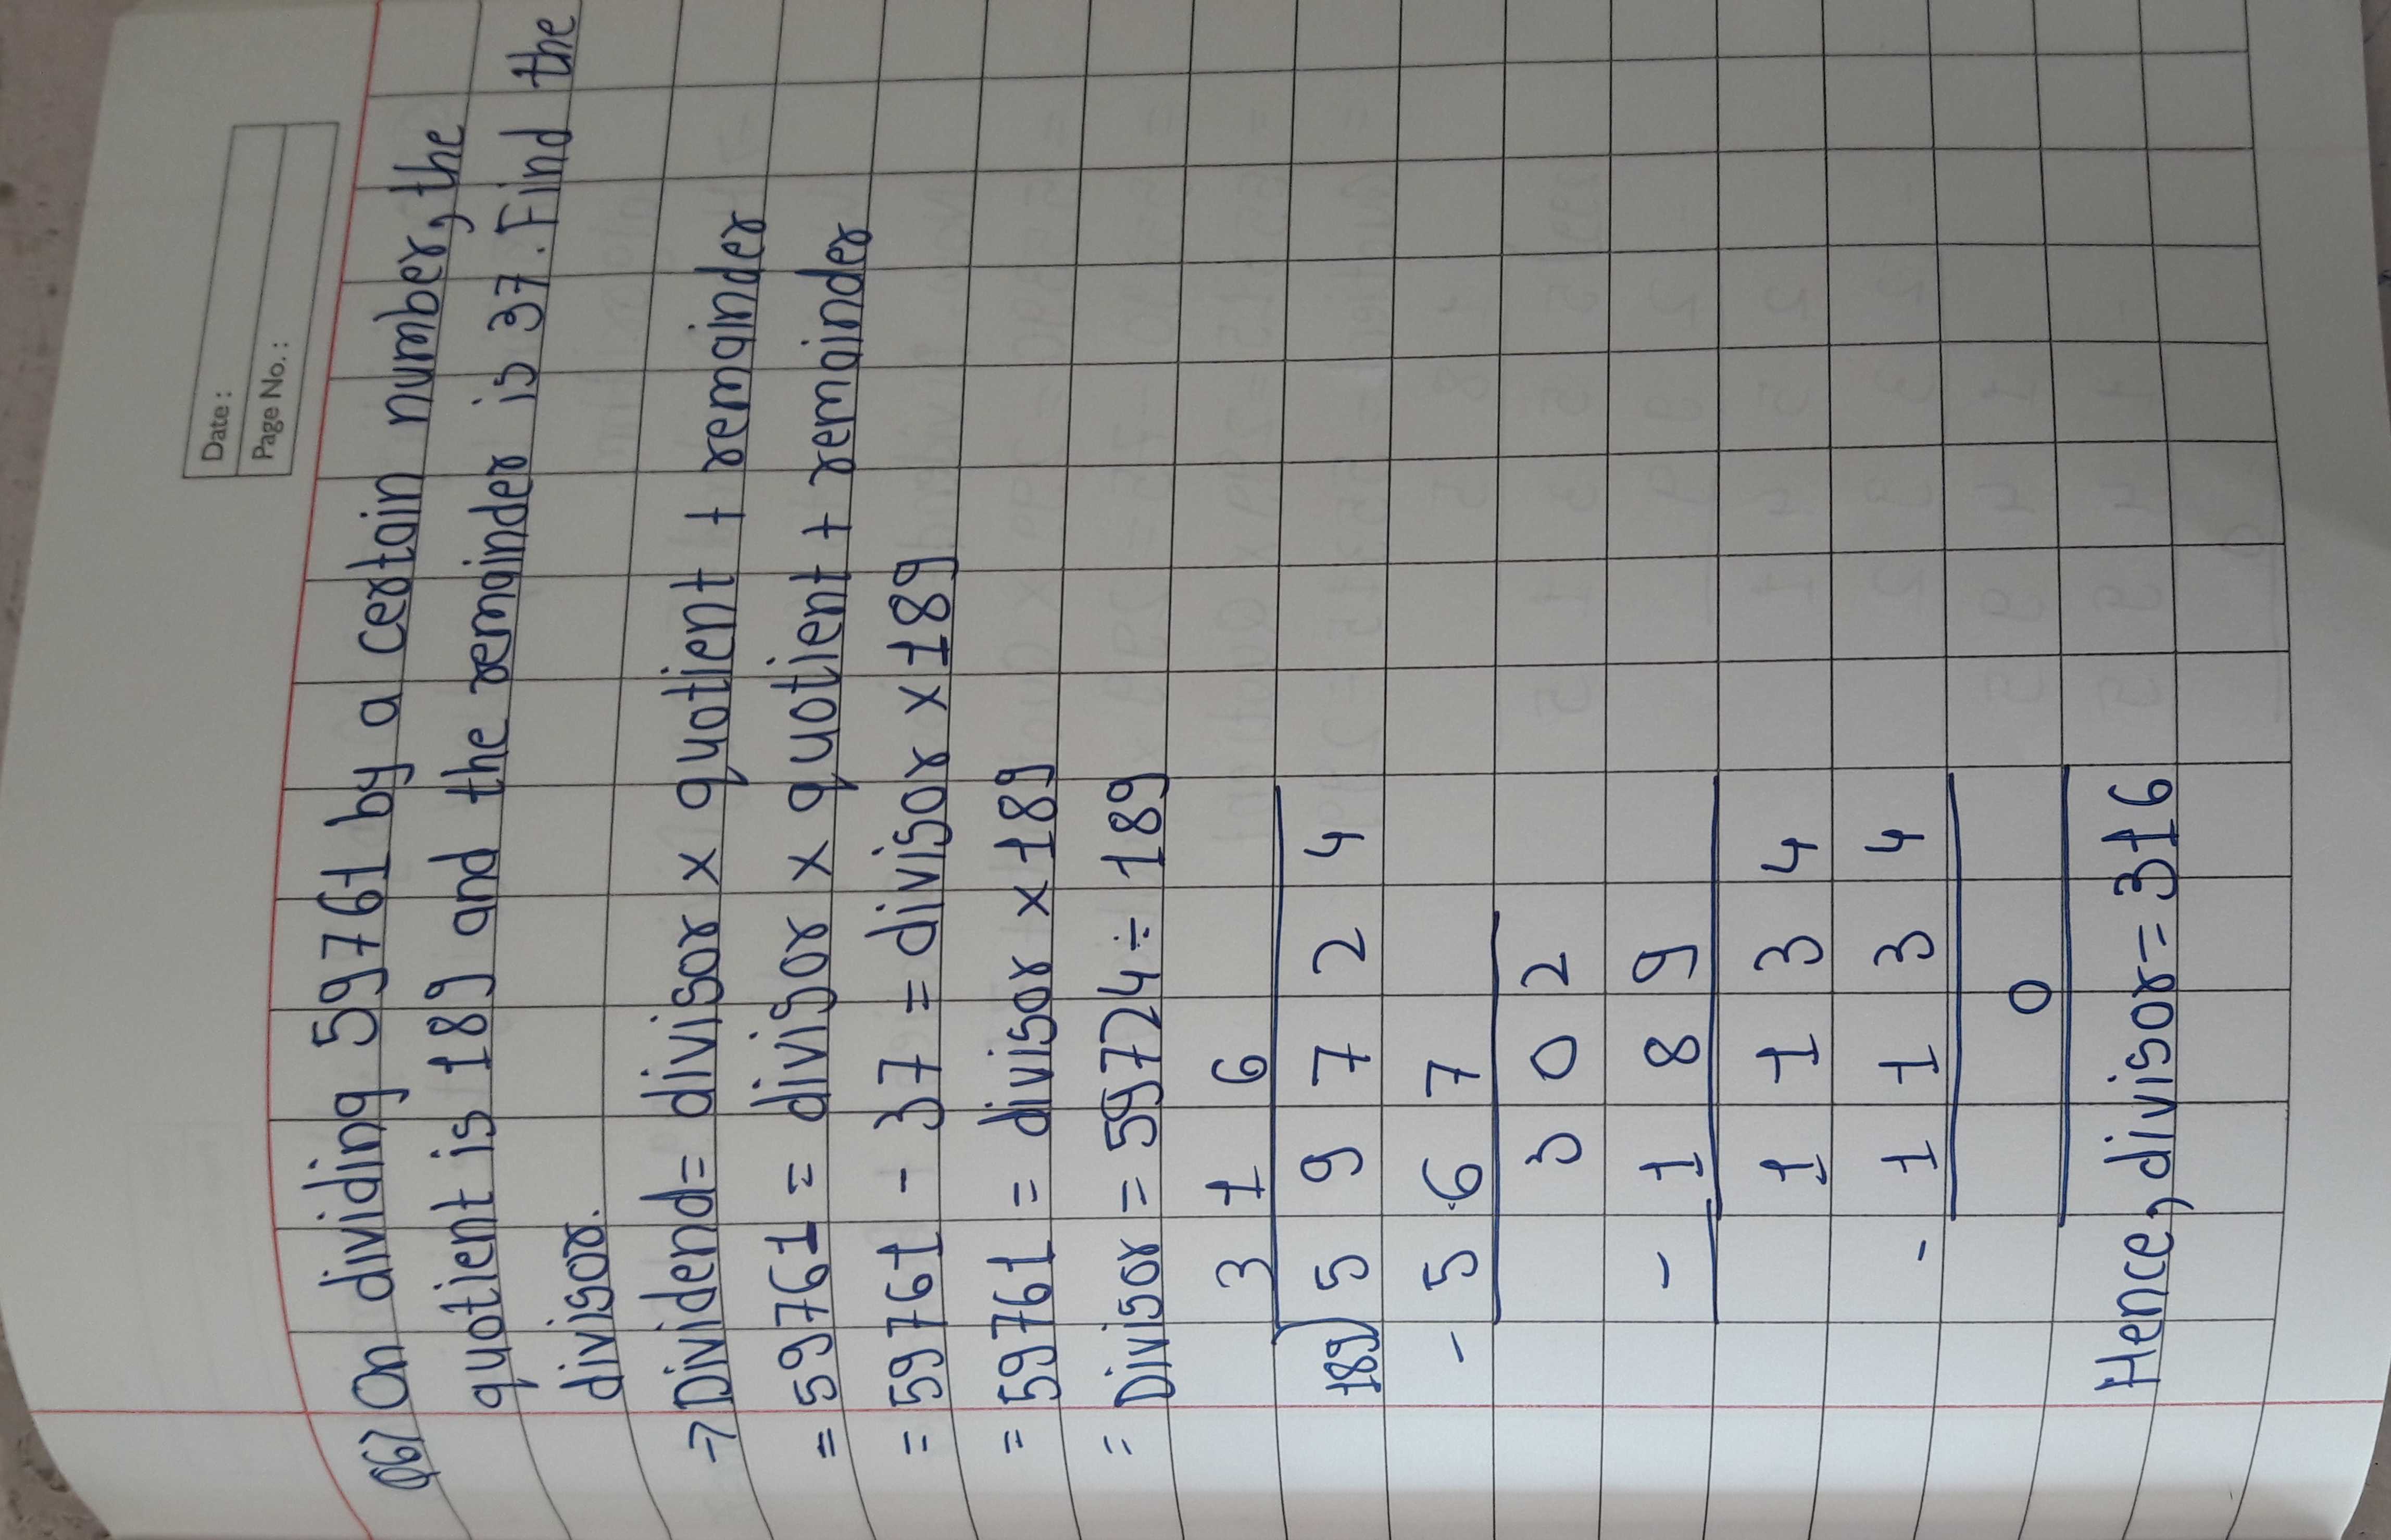 Date:
Page No.:
Q6) On dividing 59761 by a certain number, the
quotient is 189 and the remainder is 37. Find the
divisor.
→ Dividend = divisor × quotient + remainder
= 59761 = divisor × quotient + remainder
= 59761 - 37 = divisor × 189
= 59761 = divisor × 189
= Divisor = 59724 ÷ 189
3 1 6
189) 5 9 7 2 4
- 5 6 7
3 0 2
- 1 8 9
1 1 3 4
- 1 1 3 4
0
Hence, divisor = 316